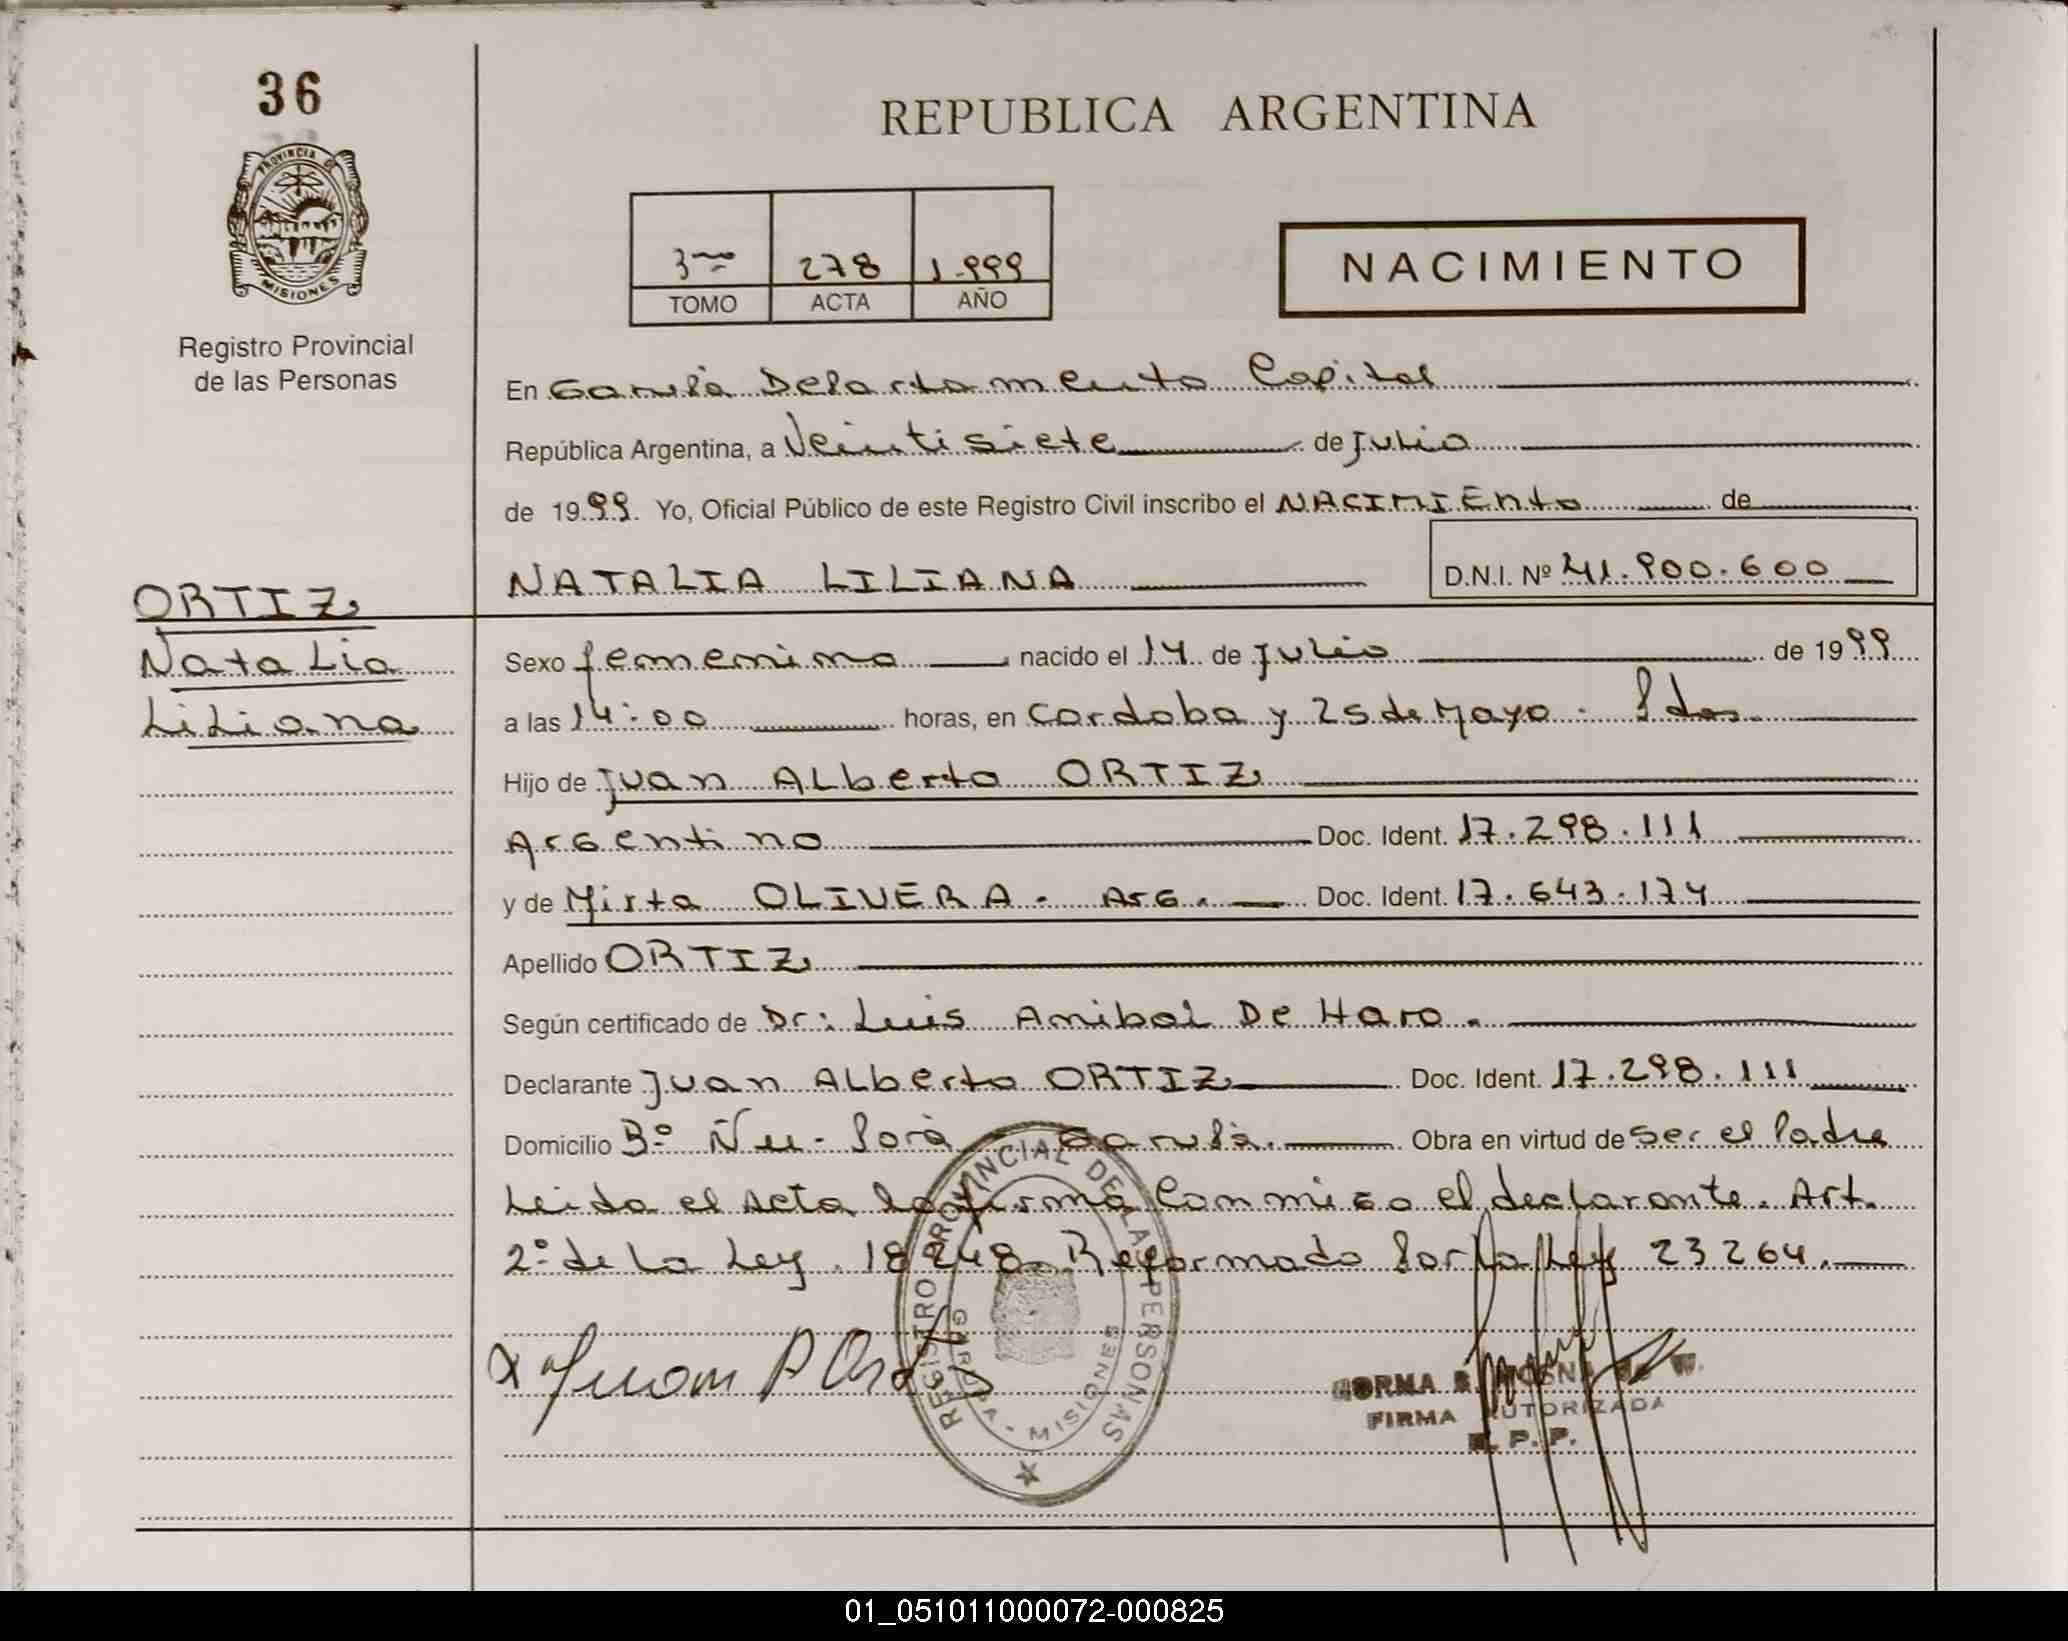 36
PROVINCIA DE
MISIONES
Registro Provincial
de las Personas
REPUBLICA ARGENTINA
3ro 278 1.999
TOMO ACTA AÑO
NACIMIENTO
En Garupá Departamento Capital
República Argentina, a Veintisiete de Julio
de 1999. Yo, Oficial Público de este Registro Civil inscribo el NACIMIENTO de
NATALIA LILIANA D.N.I. Nº 41.900.600
ORTIZ
Natalia
Liliana
Sexo femenino nacido el 14 de Julio de 1999
a las 14:00 horas, en Cordoba y 25 de Mayo - Pdas
Hijo de Juan Alberto ORTIZ
Argentino Doc. Ident. 17.298.111
y de Mirta OLIVERA. Arg. Doc. Ident. 17.643.174
Apellido ORTIZ
Según certificado de Dr: Luis Anibal De Haro.
Declarante Juan Alberto ORTIZ Doc. Ident. 17.298.111
Domicilio Bº Ñu-Porá Garupá. Obra en virtud de ser el Padre
Leida el acta la firma Conmigo el declarante. Art.
2º de La Ley 18248. Reformado Por La Ley 23264.
x Juan A Ort
REGISTRO PROVINCIAL DE LAS PERSONAS
GARUPA - MISIONES
FIRMA AUTORIZADA
R. P. P.
01_051011000072-000825